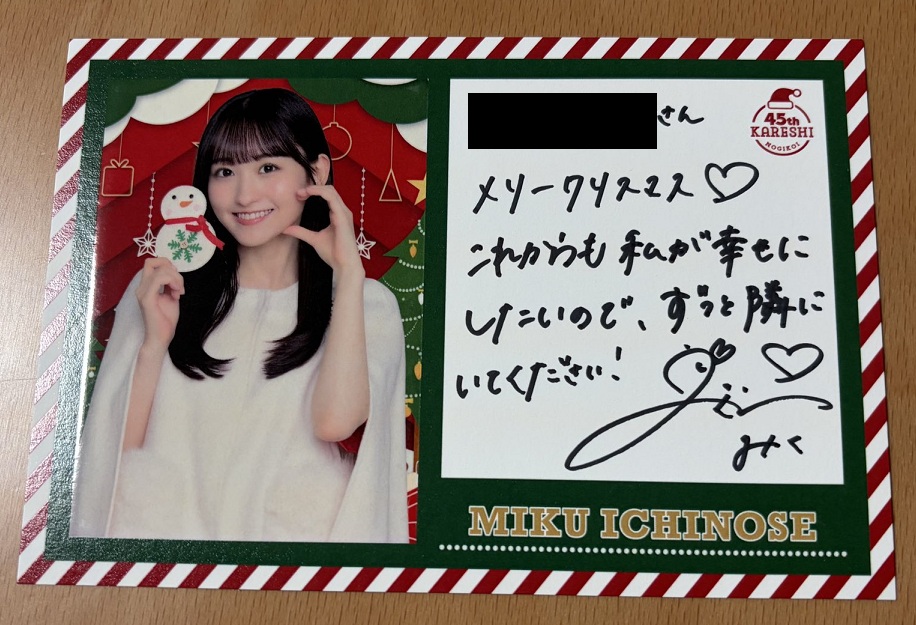 さん
45th
KARESHI
NOGIKOI
メリークリスマス♡
これからも私が幸せに
したいので、ずっと隣に
いてください!
みく
MIKU ICHINOSE